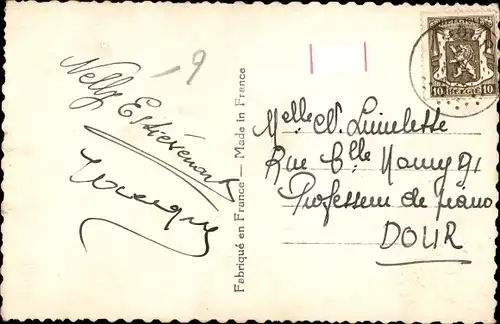 19
Nelly Estiévenart
Fabriqué en France — Made in France
BELGIQUE
10 10
Melle W. Luinlette
Rue Clle Mouy 91
Professeur de piano
DOUR